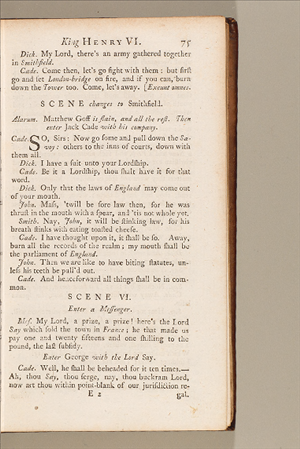 King HENRY VI. 75
Dick. My Lord, there's an army gathered together
in Smithfield.
Cade. Come then, let's go fight with them: but first
go and set London-bridge on fire, and if you can, burn
down the Tower too. Come, let's away. [Exeunt omnes.
SCENE changes to Smithfield.
Alarum. Matthew Goff is slain, and all the rest. Then
enter Jack Cade with his company.
Cade. SO, Sirs: Now go some and pull down the Sa-
voy: others to the inns of courts, down with
them all.
Dick. I have a suit unto your Lordship.
Cade. Be it a Lordship, thou shalt have it for that
word.
Dick. Only that the laws of England may come out
of your mouth.
John. Mass, 'twill be sore law then, for he was
thrust in the mouth with a spear, and 'tis not whole yet.
Smith. Nay, John, it will be stinking law, for his
breath stinks with eating toasted cheese.
Cade. I have thought upon it, it shall be so. Away,
burn all the records of the realm; my mouth shall be
the parliament of England.
John. Then we are like to have biting statutes, un-
less his teeth be pull'd out.
Cade. And henceforward all things shall be in com-
mon.
SCENE VI.
Enter a Messenger.
Mes. My Lord, a prize, a prize! here's the Lord
Say which sold the town in France; he that made us
pay one and twenty fifteens and one shilling to the
pound, the last subsidy.
Enter George with the Lord Say.
Cade. Well, he shall be beheaded for it ten times.—
Ah, thou Say, thou serge, nay, thou buckram Lord,
now art thou within point-blank of our jurisdiction re-
E 2 gal.